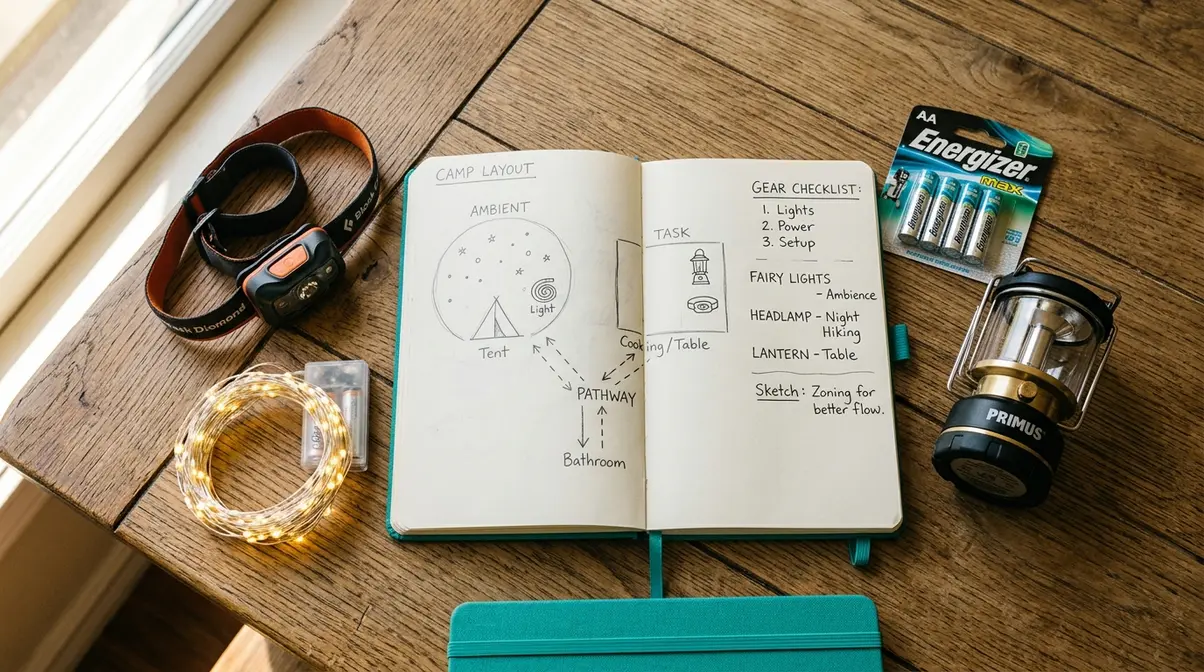 CAMP LAYOUT
AMBIENT
Light
Tent
TASK
Cooking/Table
PATHWAY
Bathroom
GEAR CHECKLIST:
1. Lights
2. Power
3. Setup
FAIRY LIGHTS
- Ambience
HEADLAMP - Night
Hiking
LANTERN - Table
Sketch: Zoning for
better flow.
Black Diamond
AA
Energizer
MAX
Energizer
Energizer
Energizer
Energizer
PRIMUS